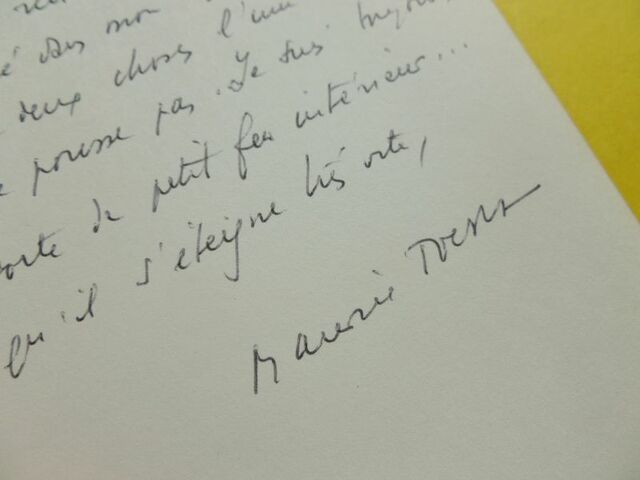 sans mon
deux choses l'une
pousse pas. Je suis toujours
sorte de petit feu intérieur...
qu'il s'éteigne très vite,
Maurice Toesca